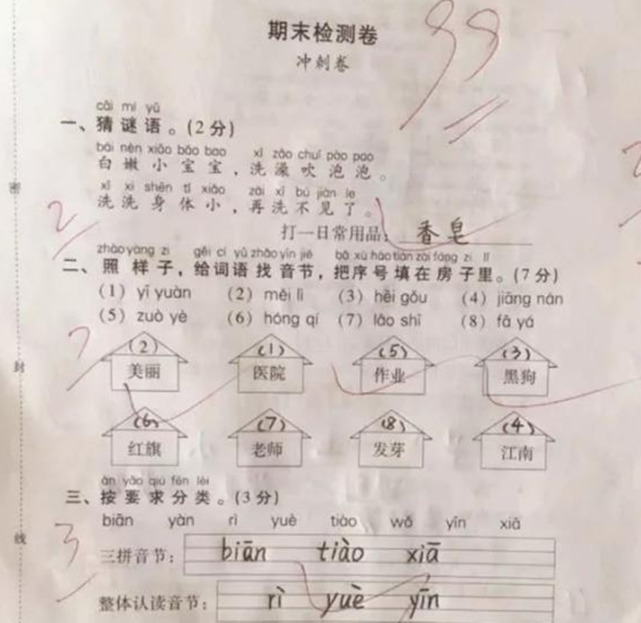 期末检测卷
99
冲刺卷
cāi mí yǔ
一、猜谜语。(2分)
bái nèn xiǎo bǎo bao xǐ zǎo chuī pào pao
白嫩小宝宝,洗澡吹泡泡。
xǐ xi shēn tǐ xiǎo zài xǐ bú jiàn le
洗洗身体小,再洗不见了。
2
打一日常用品: 香皂
zhào yàng zi gěi cí yǔ zhǎo yīn jié bǎ xù hào tián zài fáng zi lǐ
二、照样子,给词语找音节,把序号填在房子里。(7分)
(1) yī yuàn (2) měi lì (3) hēi gǒu (4) jiāng nán
(5) zuò yè (6) hóng qí (7) lǎo shī (8) fā yá
7
(2) (1) (5) (3)
美丽 医院 作业 黑狗
(6) (7) (8) (4)
红旗 老师 发芽 江南
àn yāo qiú fēn lèi
三、按要求分类。(3分)
biān yàn rì yuè tiào wǒ yīn xiā
3
三拼音节: biān tiào xiā
整体认读音节: rì yuè yīn
密
封
线